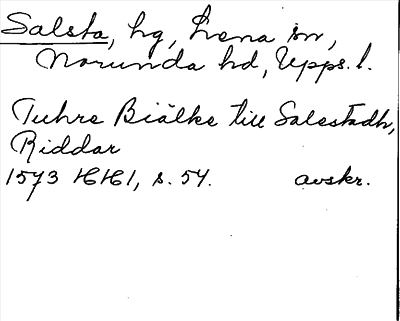 Salsta, hg, Lena sn,
Norunda hd, Upps. l.
Tuhre Biälke till Salestadh,
Riddar
1573 HH1, s. 54. avskr.